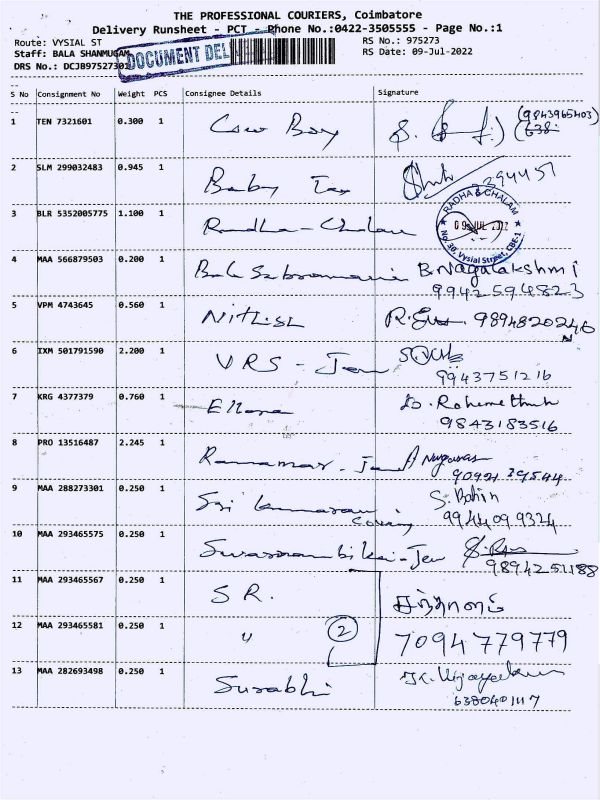 THE PROFESSIONAL COURIERS, Coimbatore
Delivery Runsheet - PCT - Phone No.:0422-3505555 - Page No.:1
Route: VYSIAL ST
RS No.: 975273
Staff: BALA SHANMUGAM
RS Date: 09-Jul-2022
DRS No.: DCJB97527301
DOCUMENT DEL
S No Consignment No Weight PCS Consignee Details Signature
1 TEN 7321601 0.300 1 Cow Boy (9843965403)
2 SLM 299032483 0.945 1 Baby Tax 2394457
3 BLR 5352005775 1.100 1 Radha - Chalam
RADHA & CHALAM
09 JUL 2022
No. 30, Vysial Street, CBE-1
4 MAA 566879503 0.200 1 Bala Subramanie B. Nagalakshmi
99425 94823
5 VPM 4743645 0.560 1 Nithish 9894820246
6 IXM 501791590 2.200 1 VRS - Jew
9943751216
7 KRG 4377379 0.760 1 Ellora
9843183516
8 PRO 13516487 2.245 1
9 MAA 288273301 0.250 1 Sri Kumaran
Covering
99440 99324
10 MAA 293465575 0.250 1 Swarnambikai - Jew
9894251188
11 MAA 293465567 0.250 1 SR.
12 MAA 293465581 0.250 1 " 2
7094779779
13 MAA 282693498 0.250 1 Surabhi
6380401117